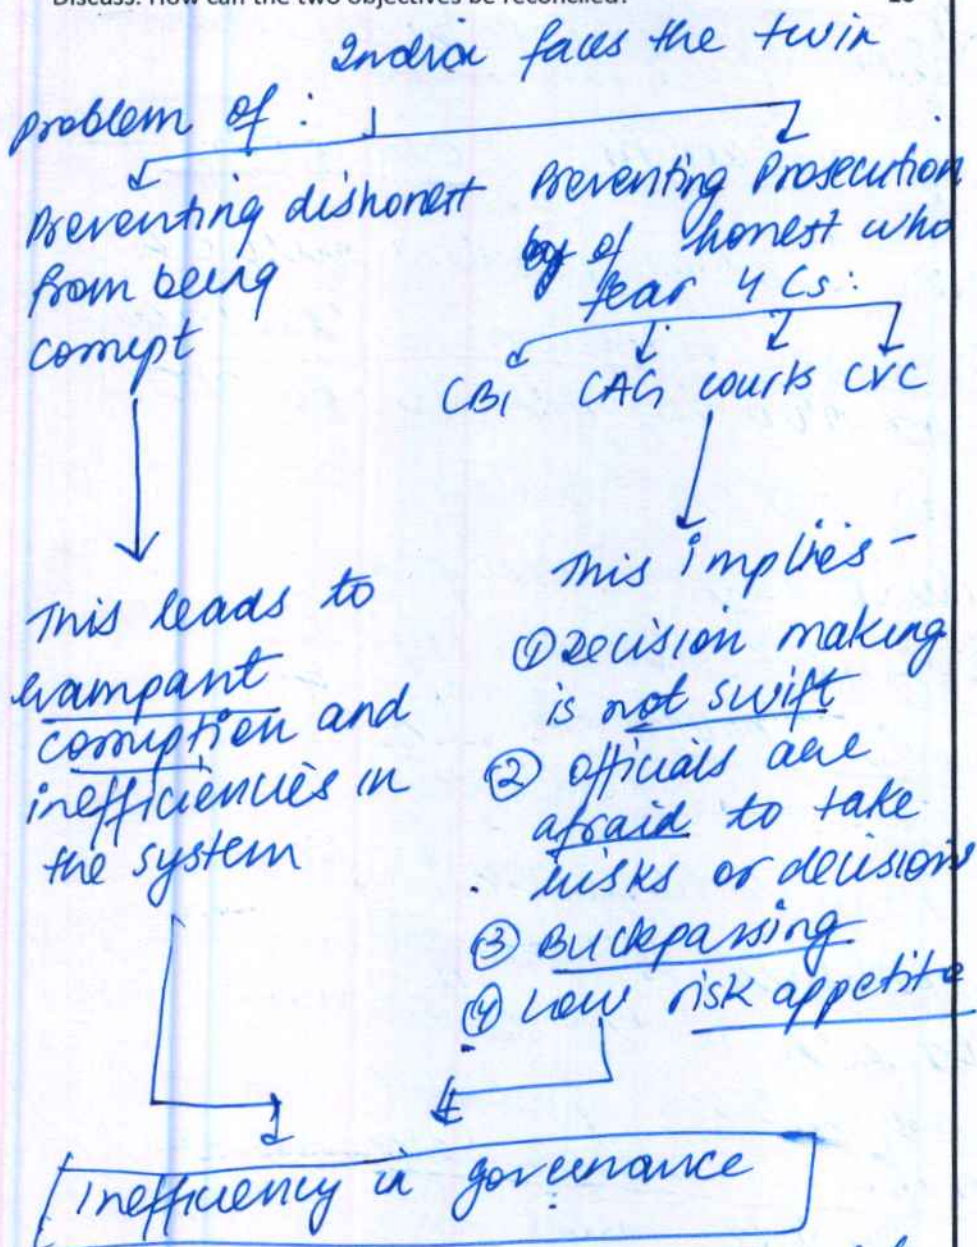 Discuss. How can the two objectives be reconciled?
India faces the twin
problem of :
Preventing dishonest
from being
corrupt
Preventing Prosecution
of honest who
fear 4 Cs:
CBI CAG courts CVC
This leads to
rampant
corruption and
inefficiencies in
the system
This implies -
① Decision making
is not swift
② officials are
afraid to take
risks or decisions
③ Buckpassing
④ Low risk appetite
Inefficiency in governance